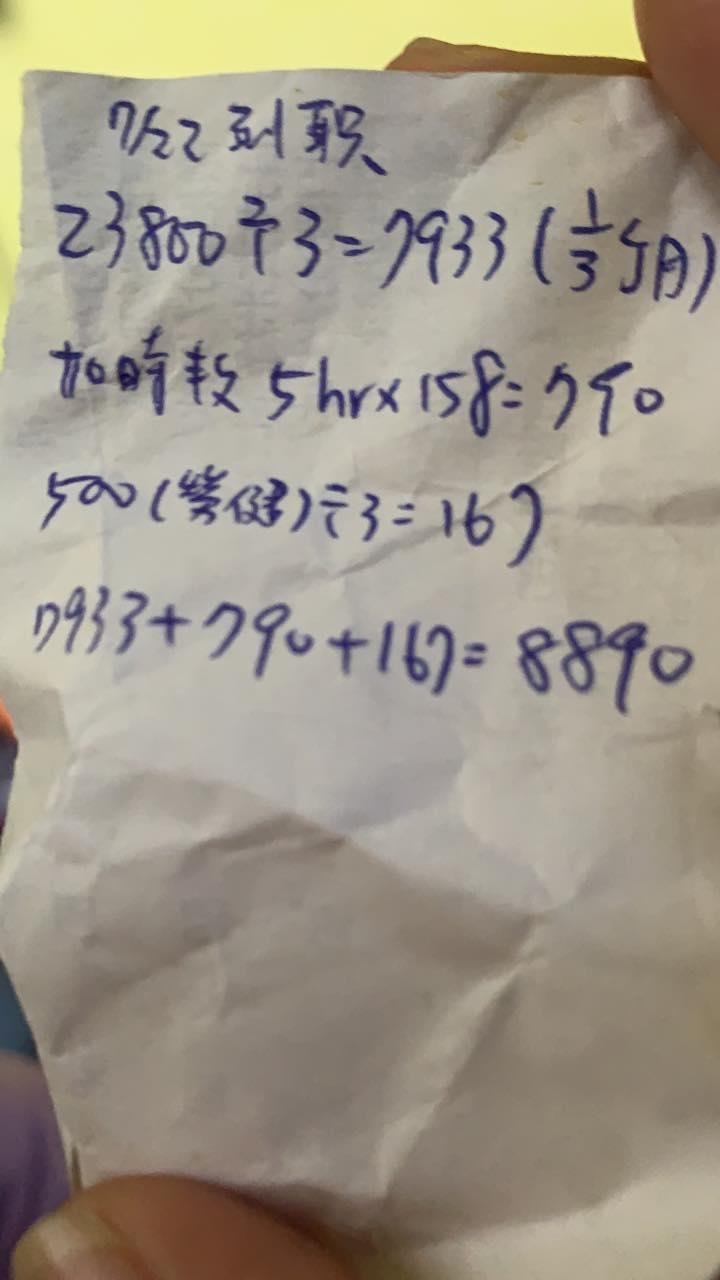 7/22 到职、
23800÷3=7933(1/3個月)
加時数 5hr×158=790
500(勞健)÷3=167
7933+790+167=8890